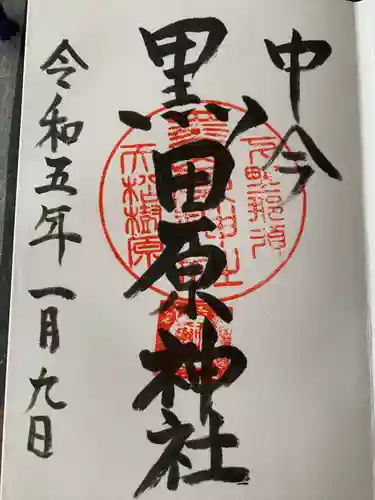 中今
黒田原神社
令和五年一月九日